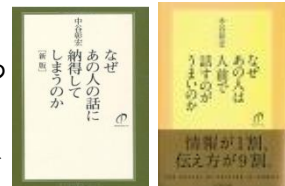 中谷彰宏
なぜ
あの人の話に
納得して
しまうのか
［新版］
中谷彰宏
なぜ
あの人は
人前で
話すのが
うまいのか
情報が1割、
伝え方が9割。